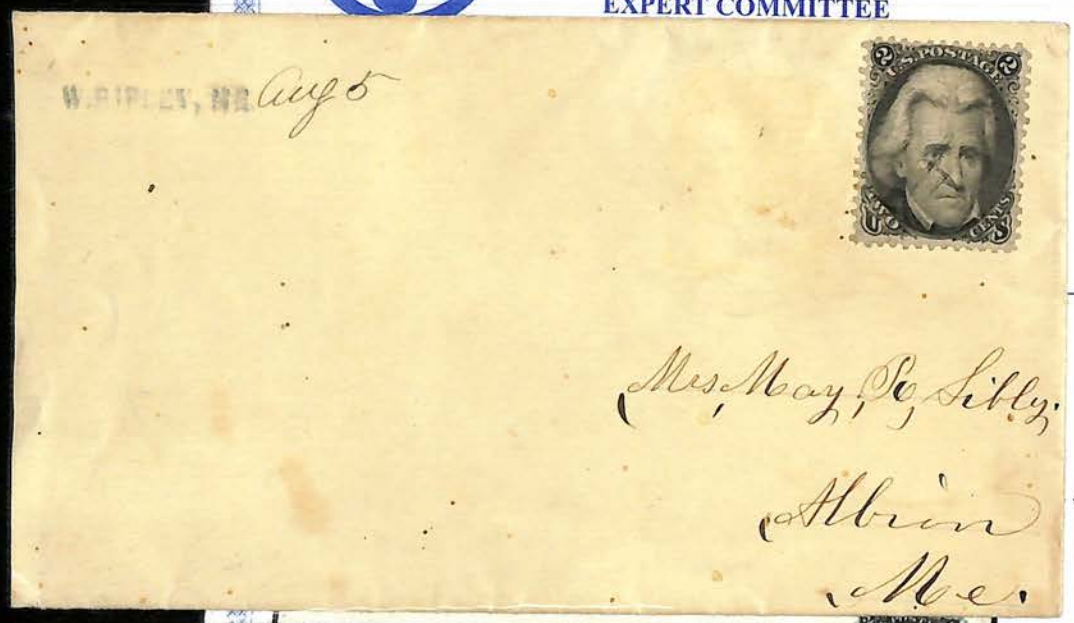 EXPERT COMMITTEE
W. RIPLEY, ME. Aug 5
2 U.S. POSTAGE 2
TWO CENTS
U S
Mrs, May, Sibly.
Albion
Me.